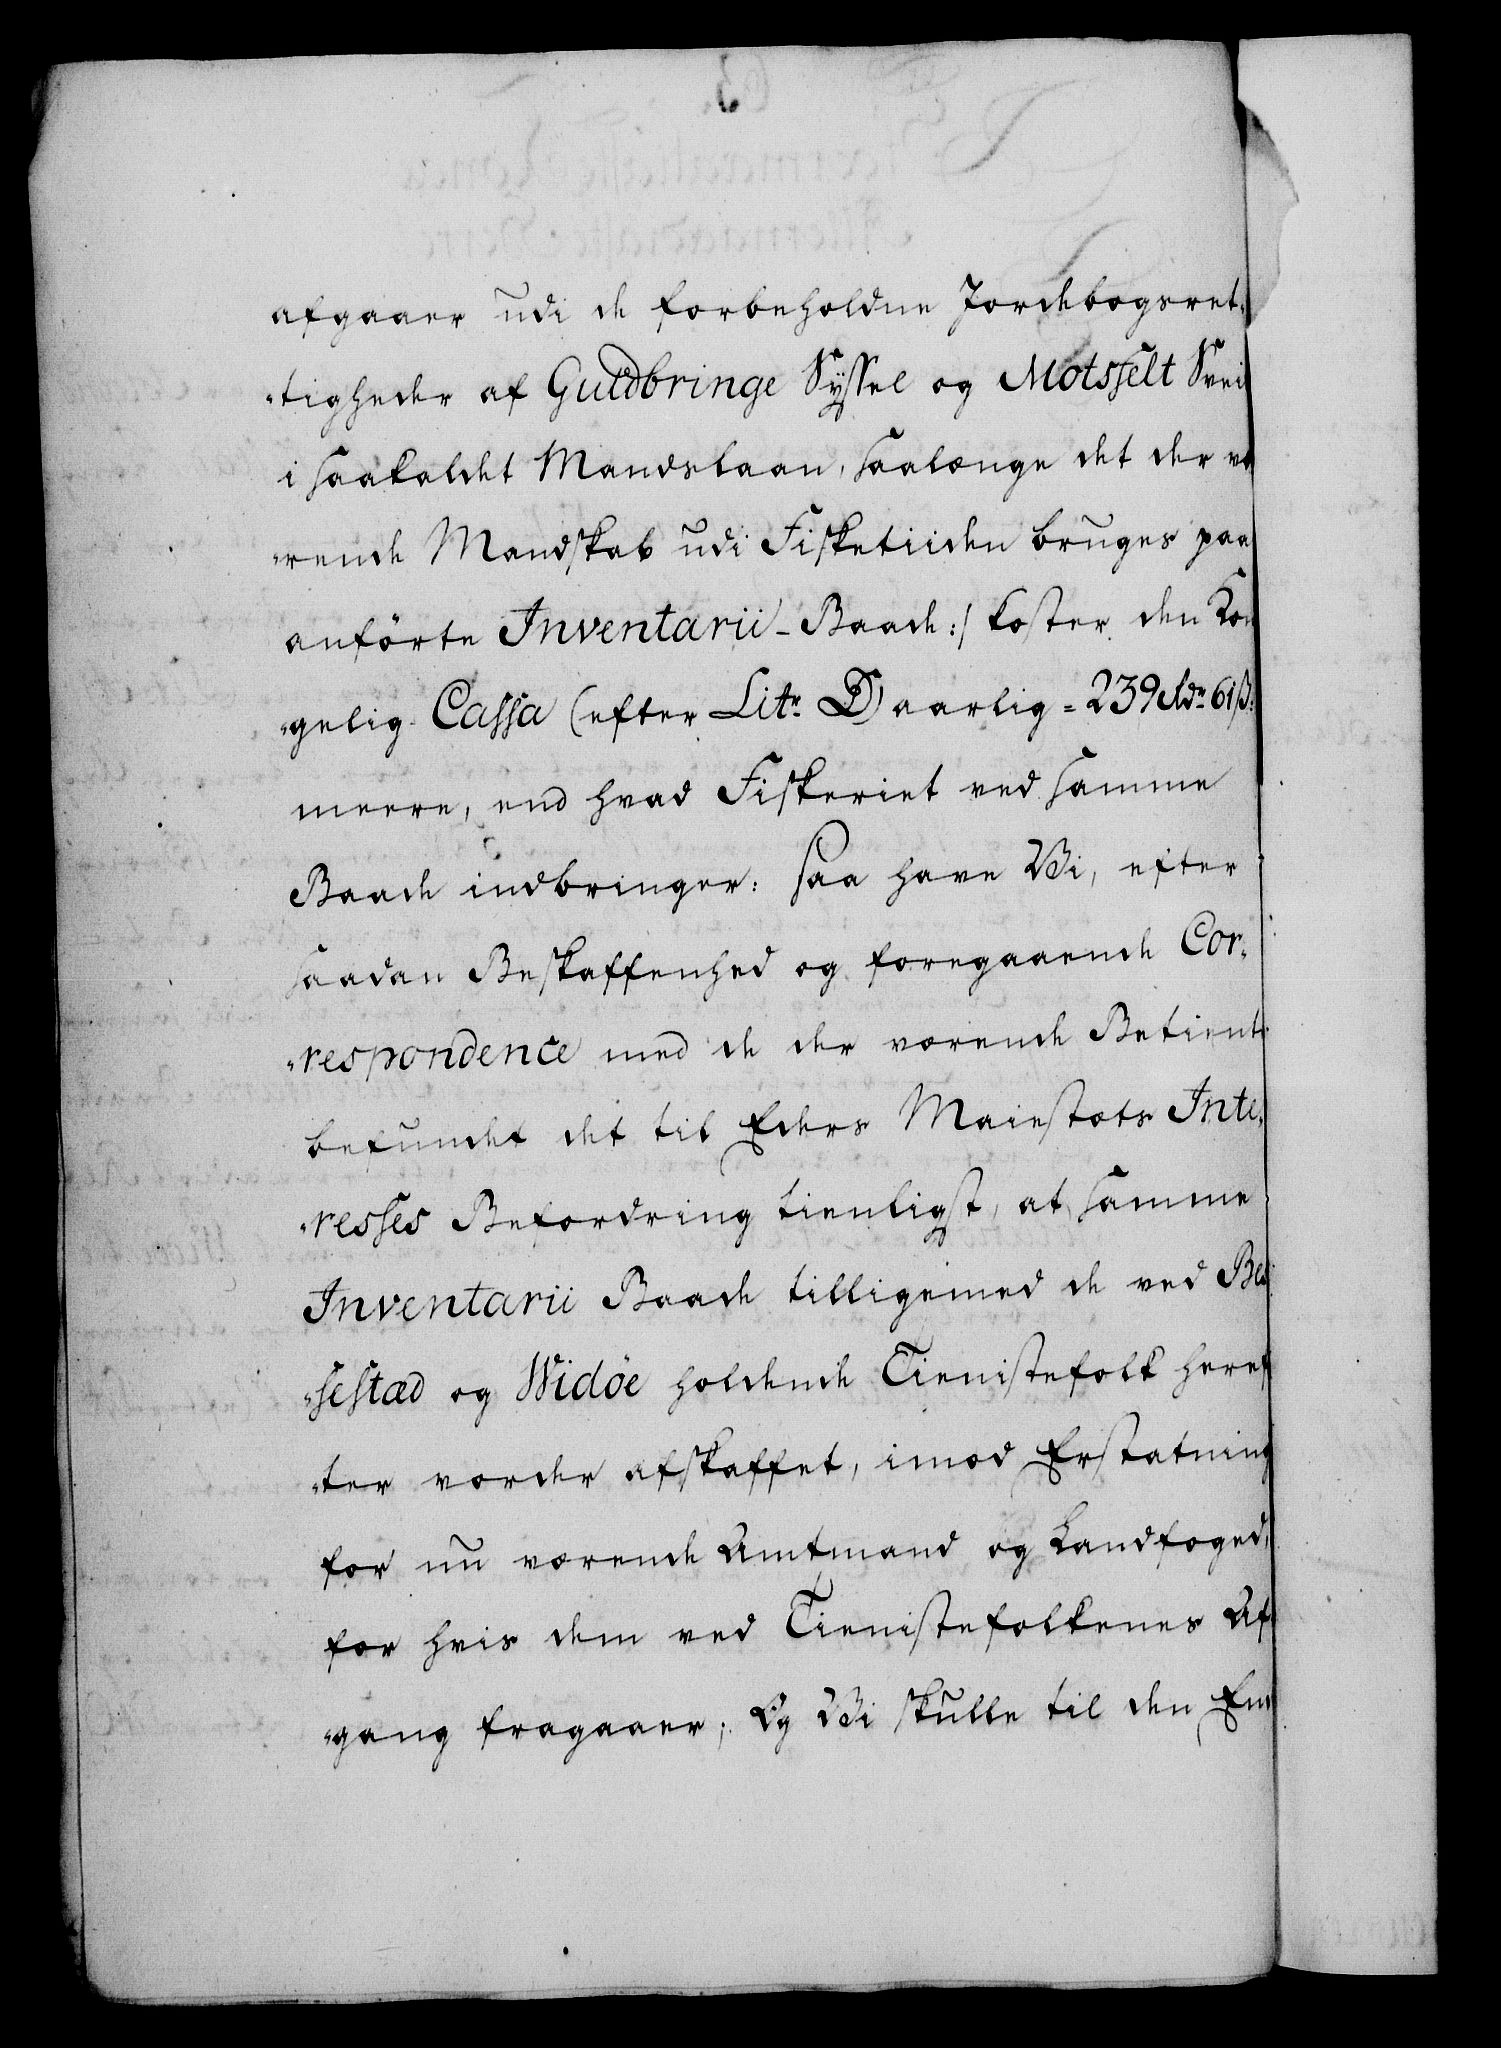 afgaaer udi de forbeholdne Jordebogsret-
-tigheder af Guldbringe Syssel og Motsfelt Svei
i saakaldet Mandslaan, saalænge det der væ
-rende Mandskab udi Fisketiiden bruges paa
anførte Inventarii-Baade:/ koster den Kon
-gelig Cassa (efter Litr. D) aarlig = 239 Rdr 61 ß:
meere, end hvad Fiskeriet ved samme
Baade indbringer: Saa have Vi, efter
saadan Beskaffenhed og foregaaende Cor-
-respondence med de der værende Betiente
befundet det til Eders Maiestæts Inte-
-resses Befordring tienligst, at samme
Inventarii Baade tilligemed de ved Bes
-sestæd og Widöe holdende Tienistefolk heref
-ter vorder afskaffet, imod Erstatning
for nu værende Amtmand og Landfoged,
for hvis dem ved Tienistefolkenes Af-
-gang fragaaer; Og Vi skulle til den En